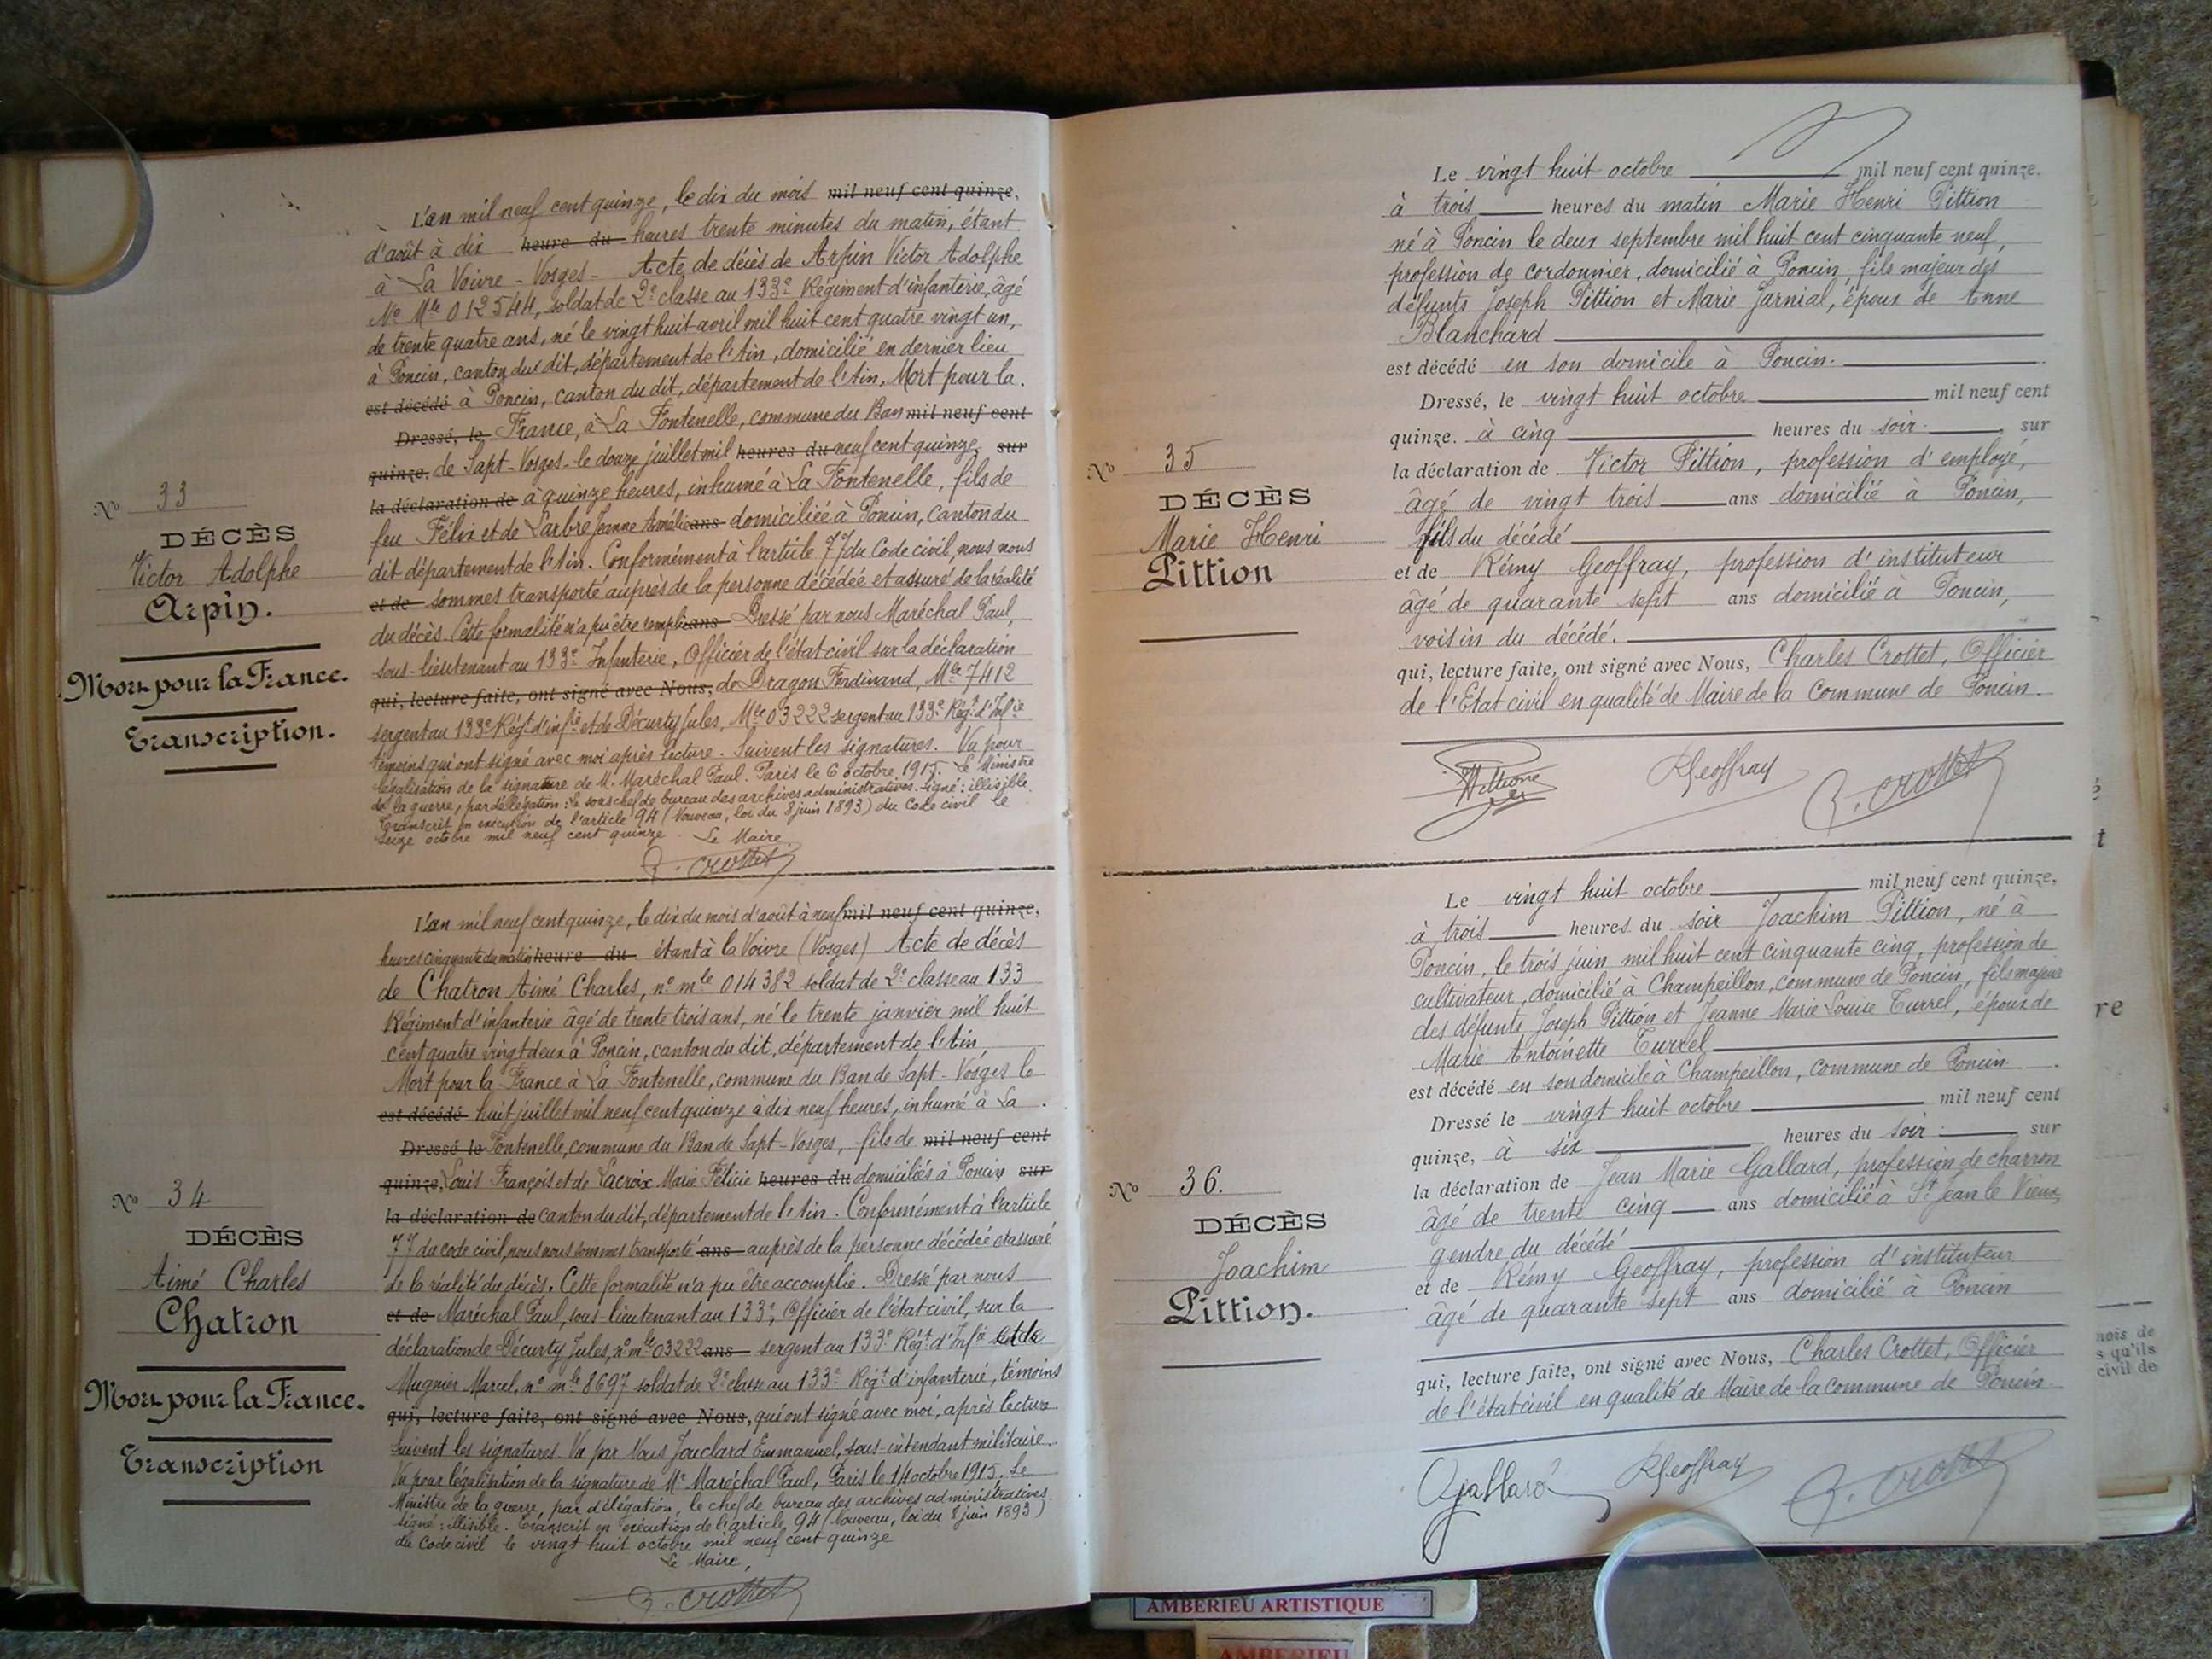 N° 33
DÉCÈS
Victor Adolphe
Arpin.
Mort pour la France.
Transcription.
L'an mil neuf cent quinze, le dix du mois mil neuf cent quinze,
d'août à dix heure du heures trente minutes du matin, étant
à La Voivre - Vosges - Acte de décès de Arpin Victor Adolphe
N° Mle 012544, soldat de 2e classe au 133e Régiment d'infanterie, âgé
de trente quatre ans, né le vingt huit avril mil huit cent quatre vingt un,
à Poncin, canton du dit, département de l'Ain, domicilié en dernier lieu
est décédé à Poncin, canton du dit, département de l'Ain, Mort pour la
Dressé, le France, à La Fontenelle, commune du Ban mil neuf cent
quinze, de Sapt - Vosges - le douze juillet mil heures du neuf cent quinze, sur
la déclaration de à quinze heures, inhumé à La Fontenelle, fils de
feu Félix et de Larbre Jeanne Amélie ans domiciliée à Poncin, canton du
dit département de l'Ain. Conformément à l'article 77 du Code civil, nous nous
et de sommes transporté auprès de la personne décédée et assuré de la réalité
du décès. Cette formalité n'a pu être remplie ans Dressé par nous Maréchal Paul,
sous-lieutenant au 133e Infanterie, Officier de l'état civil sur la déclaration
qui, lecture faite, ont signé avec Nous, de Dragon Ferdinand, Mle 7412
sergent au 133e Régt d'infie et de Décurty Jules, Mle 03222 sergent au 133e Régt d'Infie
témoins qui ont signé avec moi après lecture. Suivent les signatures. Vu pour
légalisation de la signature de M. Maréchal Paul. Paris le 6 octobre 1915. Le Ministre
de la guerre, par délégation: le sous chef de bureau des archives administratives. Signé: illisible.
Transcrit en exécution de l'article 94 (Nouveau, loi du 8 juin 1893) du Code civil le
seize octobre mil neuf cent quinze. Le Maire.
C. Crottet
N° 34
DÉCÈS
Aimé Charles
Chatron
Mort pour la France.
Transcription
L'an mil neuf cent quinze, le dix du mois d'août à neuf mil neuf cent quinze,
heures cinquante du matin heure du étant à la Voivre (Vosges) Acte de décès
de Chatron Aimé Charles, n° mle 014382 soldat de 2e classe au 133
Régiment d'infanterie âgé de trente trois ans, né le trente janvier mil huit
cent quatre vingt deux à Poncin, canton du dit, département de l'Ain,
Mort pour la France à La Fontenelle, commune du Ban de Sapt - Vosges le
est décédé huit juillet mil neuf cent quinze à dix neuf heures, inhumé à La
Dressé le Fontenelle, commune du Ban de Sapt - Vosges, fils de mil neuf cent
quinze, Louis François et de Lacroix Marie Félicie heures du domiciliés à Poncin sur
la déclaration de canton du dit, département de l'Ain. Conformément à l'article
77 du code civil, nous nous sommes transporté ans auprès de la personne décédée et assuré
de la réalité du décès. Cette formalité n'a pu être accomplie. Dressé par nous
et de Maréchal Paul, sous-lieutenant au 133e, Officier de l'état civil, sur la
déclaration de Décurty Jules, n° mle 03222 ans sergent au 133e Régt d'Infie et de
Mugnier Marcel, n° mle 8697 soldat de 2e classe au 133e Régt d'infanterie, témoins
qui, lecture faite, ont signé avec Nous, qui ont signé avec moi, après lecture
Suivent les signatures. Vu par Nous Jouclard Emmanuel, sous-intendant militaire.
Vu pour légalisation de la signature de Mr Maréchal Paul, Paris le 14 octobre 1915. Le
Ministre de la guerre, par délégation, le chef de bureau des archives administratives.
Signé: illisible. Transcrit en exécution de l'article 94 (Nouveau, loi du 8 juin 1893)
du Code civil le vingt huit octobre mil neuf cent quinze
Le Maire,
C. Crottet
N° 35
DÉCÈS
Marie Henri
Pittion
Le vingt huit octobre mil neuf cent quinze.
à trois heures du matin Marie Henri Pittion
né à Poncin le deux septembre mil huit cent cinquante neuf,
profession de cordonnier, domicilié à Poncin, fils majeur des
défunts Joseph Pittion et Marie Jarnial, époux de Anne
Blanchard
est décédé en son domicile à Poncin.
Dressé, le vingt huit octobre mil neuf cent
quinze. à cinq heures du soir sur
la déclaration de Victor Pittion, profession d'employé,
âgé de vingt trois ans domicilié à Poncin,
fils du décédé
et de Rémy Geoffray, profession d'instituteur
âgé de quarante sept ans domicilié à Poncin,
voisin du décédé.
qui, lecture faite, ont signé avec Nous, Charles Crottet, Officier
de l'Etat civil en qualité de Maire de la Commune de Poncin.
Pittion RGeoffray C. Crottet
N° 36.
DÉCÈS
Joachim
Pittion.
Le vingt huit octobre mil neuf cent quinze,
à trois heures du soir Joachim Pittion, né à
Poncin, le trois juin mil huit cent cinquante cinq, profession de
cultivateur, domicilié à Champeillon, commune de Poncin, fils majeur
des défunts Joseph Pittion et Jeanne Marie Louise Turrel, époux de
Marie Antoinette Turrel
est décédé en son domicile à Champeillon, commune de Poncin
Dressé le vingt huit octobre mil neuf cent
quinze, à six heures du soir sur
la déclaration de Jean Marie Gallard, profession de charron
âgé de trente cinq ans domicilié à St Jean le Vieux,
gendre du décédé
et de Rémy Geoffray, profession d'instituteur
âgé de quarante sept ans domicilié à Poncin
qui, lecture faite, ont signé avec Nous, Charles Crottet, Officier
de l'état civil en qualité de Maire de la commune de Poncin.
Gallard RGeoffray C. Crottet
t
re
nois de
s qu'ils
civil de
AMBERIEU ARTISTIQUE
AMBERIEU